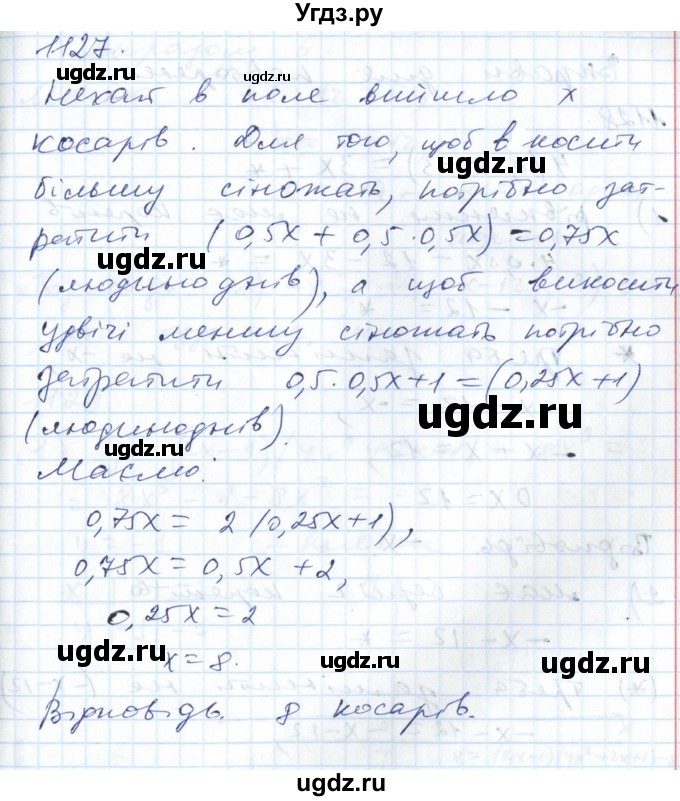 Угдз.ру
1127.
Нехай в поле вийшло x
косарів. Для того, щоб в косити
більшу сіножать, потрібно зат-
ратити (0,5x + 0,5·0,5x) = 0,75x
(людинoднів), а щоб викосити
удвічі меншу сіножать потрібно
затратити 0,5·0,5x+1=(0,25x+1)
(людиноднів).
Маємо:
0,75x = 2(0,25x+1),
0,75x = 0,5x +2,
0,25x = 2
x=8.
Відповідь. 8 косарів.
ugdz.ru
ugdz.ru
ugdz.ru
ugdz.ru
ugdz.ru
ugdz.ru
ugdz.ru
ugdz.ru
ugdz.ru
ugdz.ru
ugdz.ru
ugdz.ru
ugdz.ru
ugdz.ru